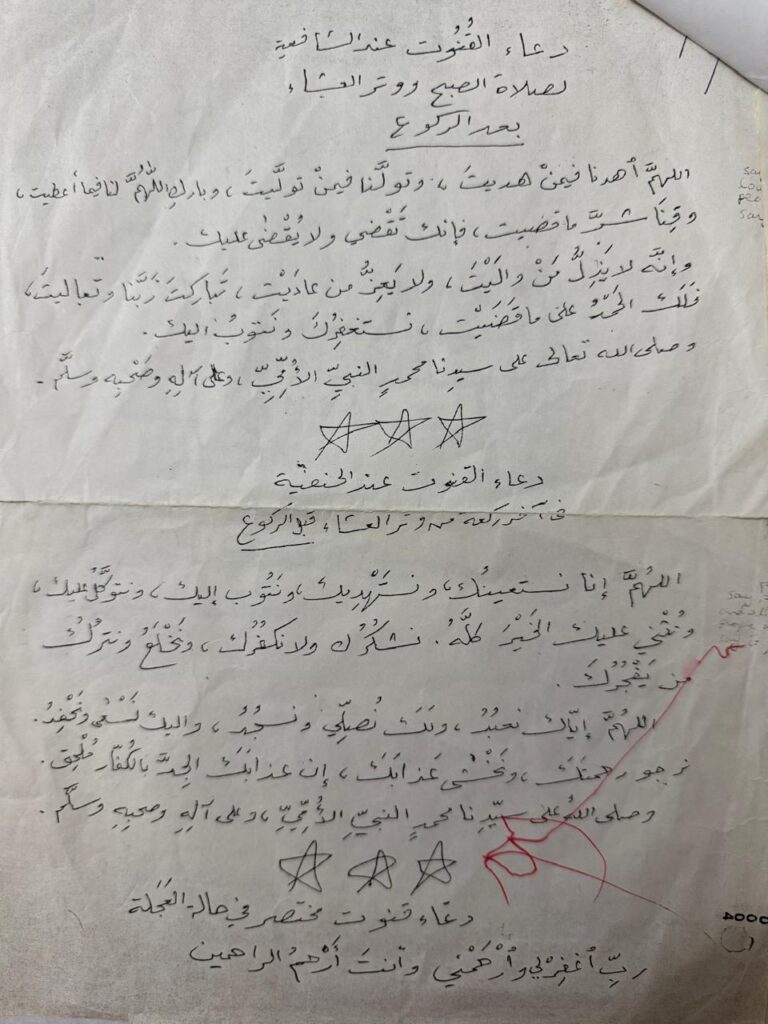 دعاء القُنُوت عند الشافعية
لصلاة الصبح ووتر العشاء
بعد الركوع
اللهمَّ أهدنا فيمنْ هديتَ، وتولَّنا فيمنْ تولَّيتَ، وبارك اللَّهُمَّ لنا فيما أعطيت،
وقِنَا شرَّ ما قضيت، فإنك تَقْضي ولا يُقْضى عليك.
وإنَّه لا يَذِلُّ مَنْ والَيْتَ، ولا يَعِزُّ من عادَيْت، تَباركتَ رَبَّنا وتعاليتَ،
فَلَكَ الحَمْدُ على ما قَضَيْت، نستغفِرُكَ ونَتوبُ اليك.
وصلى الله تعالى على سيدِنا محمدٍ النبيِّ الأُمِّيِّ، وعلى آلِهِ وصَحْبِه وسلَّم.
دعاء القنوت عند الحنفيَّة
في آخر ركعة من وتر العشاء قبل الركوع
اللهُمَّ إنا نستعينُك، ونستَهْدِيك، ونَتُوب إليك، ونتوكَّلُ عليك،
ونُثْني عليك الخَيْرَ كلَّهُ. نشكُرُك ولا نكفُرُك، ونَخْلَعُ ونترُكُ
من يَفْجُرُكَ.
اللهُمَّ إيَّاك نعبُدُ، ولكَ نُصلِّي ونسجُدُ، واليك نَسْعَى ونَحْفِدُ.
نرجو رحمتَكَ، ونَخْشَى عَذابَكَ، إن عذابَكَ الجِدَّ بالكُفّار مُلْحِق.
وصلى اللهُ على سيِّدِنا محمدٍ النبيِّ الأُمِّيِّ، وعلى آلِهِ وصحبِهِ وسلَّم.
دعاء قنوت مختصر في حالة العَجَلة
ربِّ أغفِرْلي وأرْحَمْني وأنتَ أرْحمُ الراحمين